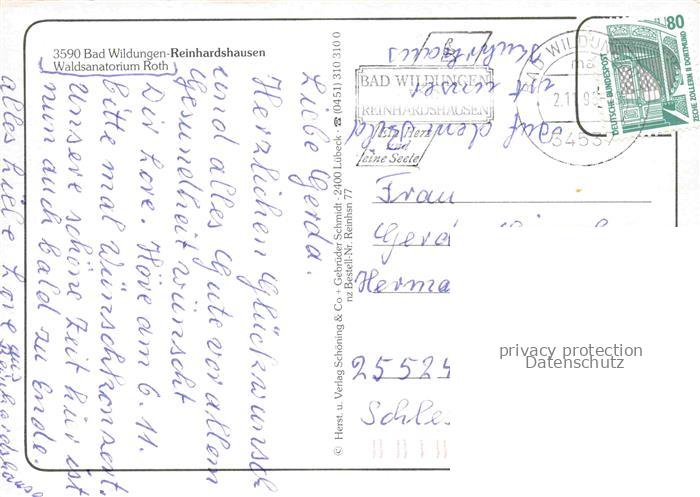 3590 Bad Wildungen-Reinhardshausen
Waldsanatorium Roth
Liebe Gerda.
Herzlichen Glückwunsch
und alles Gute vor allem
Gesundheit wünscht
Dir Lore. Höre am 6.11.
bitte mal Wunschkonzert.
Unsere schöne Zeit hier ist
nun auch bald zu Ende.
alles Liebe Lore aus
Reinhardshausen
© Herst. u. Verlag Schöning & Co + Gebrüder Schmidt · 2400 Lübeck · ☎ (0451) 310 310 0
nz Bestell-Nr. Reinhsn 77
auf dem Bild
ist unser
BAD WILDUNGEN
REINHARDSHAUSEN
Herz
und
eine Seele
BAD WILDUN
2.11.9
34537
80
DEUTSCHE BUNDESPOST
ZECHE ZOLLERN II DORTMUND
Frau
Gerd
Herma
25524
Schles
privacy protection
Datenschutz